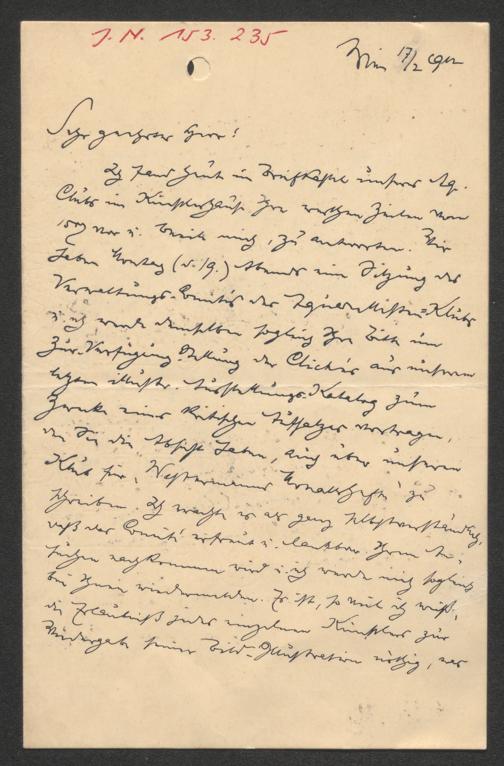 J. N. 153.235
Wien 17/2 902
Sehr geehrter Herr!
Ich fand heut im Briefkastel unseres Aq.
Clubs im Künstlerhause Ihre werthen Zeilen vom
vor u. beeile mich, zu antworten. Wir
haben Montag (d. 19.) Abends eine Sitzung des
Verwaltungs-Comités des Aquarellisten-Klubs
u. ich werde demselben sogleich Ihre Bitte um
Zur-Verfügung-Stellung der Clichés aus unserem
letzten illustr. Ausstellungs-Katalog zum
Zwecke eines kritischen Aufsatzes vortragen,
den Sie die Absicht haben, auch über unseren
Klub für "Westermanns Monatshefte" zu
schreiben. Ich erachte es als ganz selbstverständlich,
daß das Comité erfreut u. dankbar Ihrem An-
suchen nachkommen wird u. ich werde mich sogleich
bei Ihnen wiedermelden. Es ist, so viel ich weiß,
die Erlaubniß jedes einzelnen Künstlers zur
Wiedergabe seiner Bild-Illustration nöthig, was